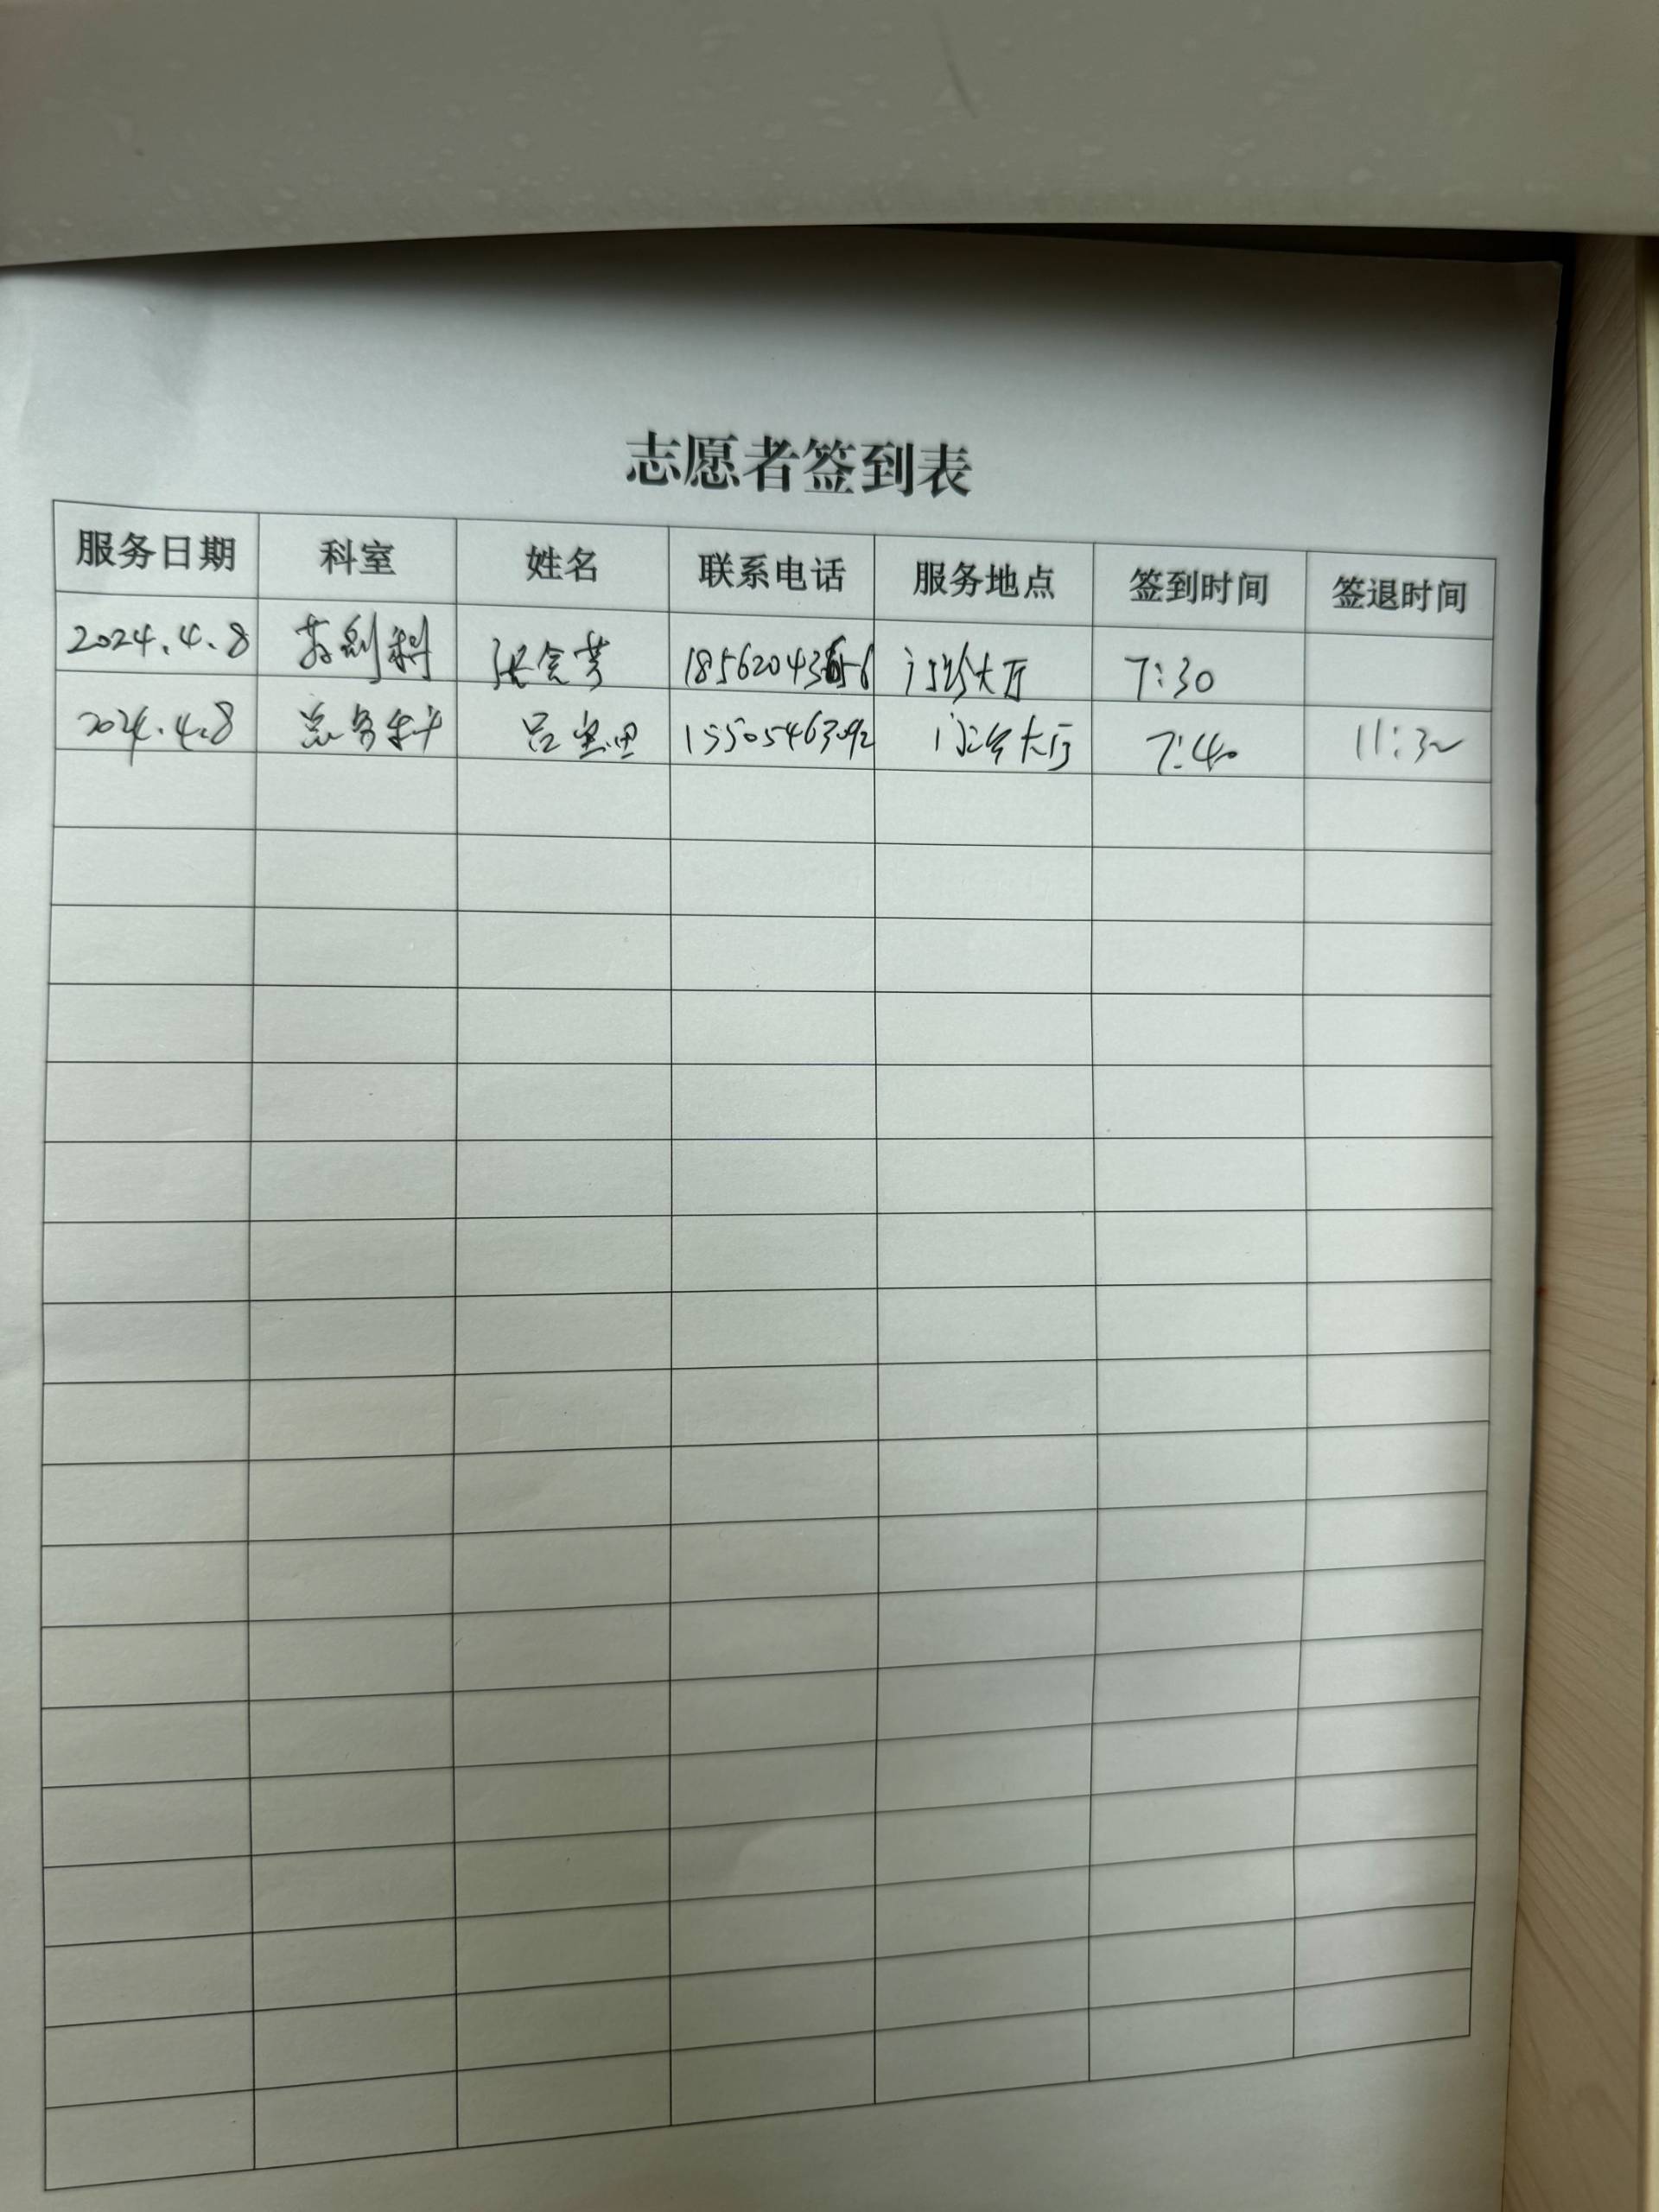 志愿者签到表
服务日期 科室 姓名 联系电话 服务地点 签到时间 签退时间
2024.4.8 药剂科 张会芳 门诊大厅 7:30
2024.4.8 总务科 吕 15505463092 门诊大厅 7:40 11:30